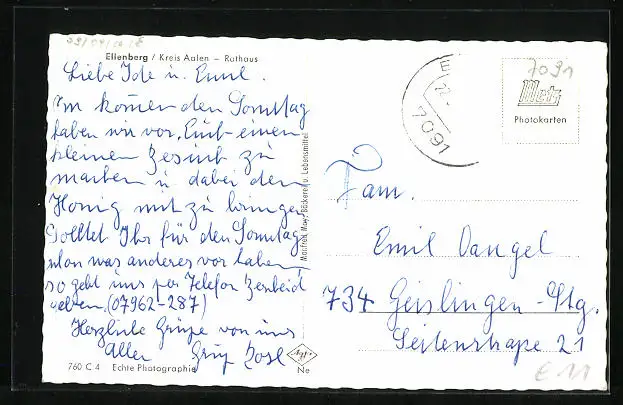 Ellenberg / Kreis Aalen – Rathaus
Liebe Ida u. Emil.
Am kommenden Sonntag
haben wir vor, Euch einen
kleinen Besuch zu
machen u dabei den
Honig mit zu bringen
Solltet Ihr für den Sonntag
schon was anderes vor haben
so gebt uns per Telefon Bescheid
(07962-287)
Herzliche Grüße von uns
Allen Gruß Rosl
760 C 4 Echte Photographie
Ne
Manfred May, Bäckerei u. Lebensmittel
7091
7091
Metz
Photokarten
Fam.
Emil Dangel
734 Geislingen-Stg.
Seitenstraße 21
E 11